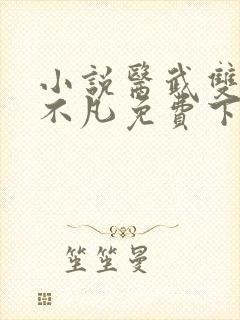 小説醫武雙
不凡免費下
笙笙曼